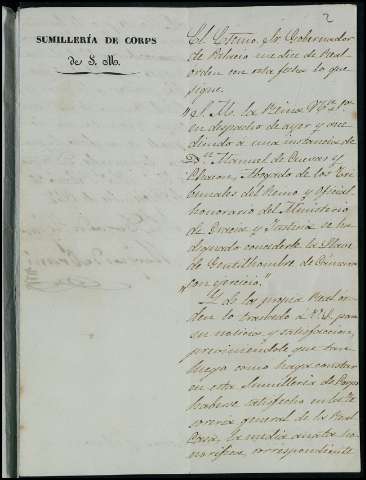 2
SUMILLERÍA DE CORPS
de S. M.
El Excmo. Sr. Gobernador
de Palacio me dice de Real
orden con esta fecha lo que
sigue.
"S. M. la Reina
en despacho de ayer y acce
diendo a una instancia de
Dn. Manuel de Cuevas y
Chacon, Abogado de los Tri
bunales del Reino y Oficial
honorario del Ministerio
de Gracia y Justicia se ha
dignado concederle la Llave
de Gentilhombre de Cámara
con ejercicio."
Y de la propia Real ór
den lo traslado a V. S. para
su noticia y satisfaccion,
previniéndole que tan
luego como haga constar
en esta Sumilleria de Corps
haberse satisfecho en la Te
sorería general de la Real
Casa, la media anata ho
norífica, correspondiente